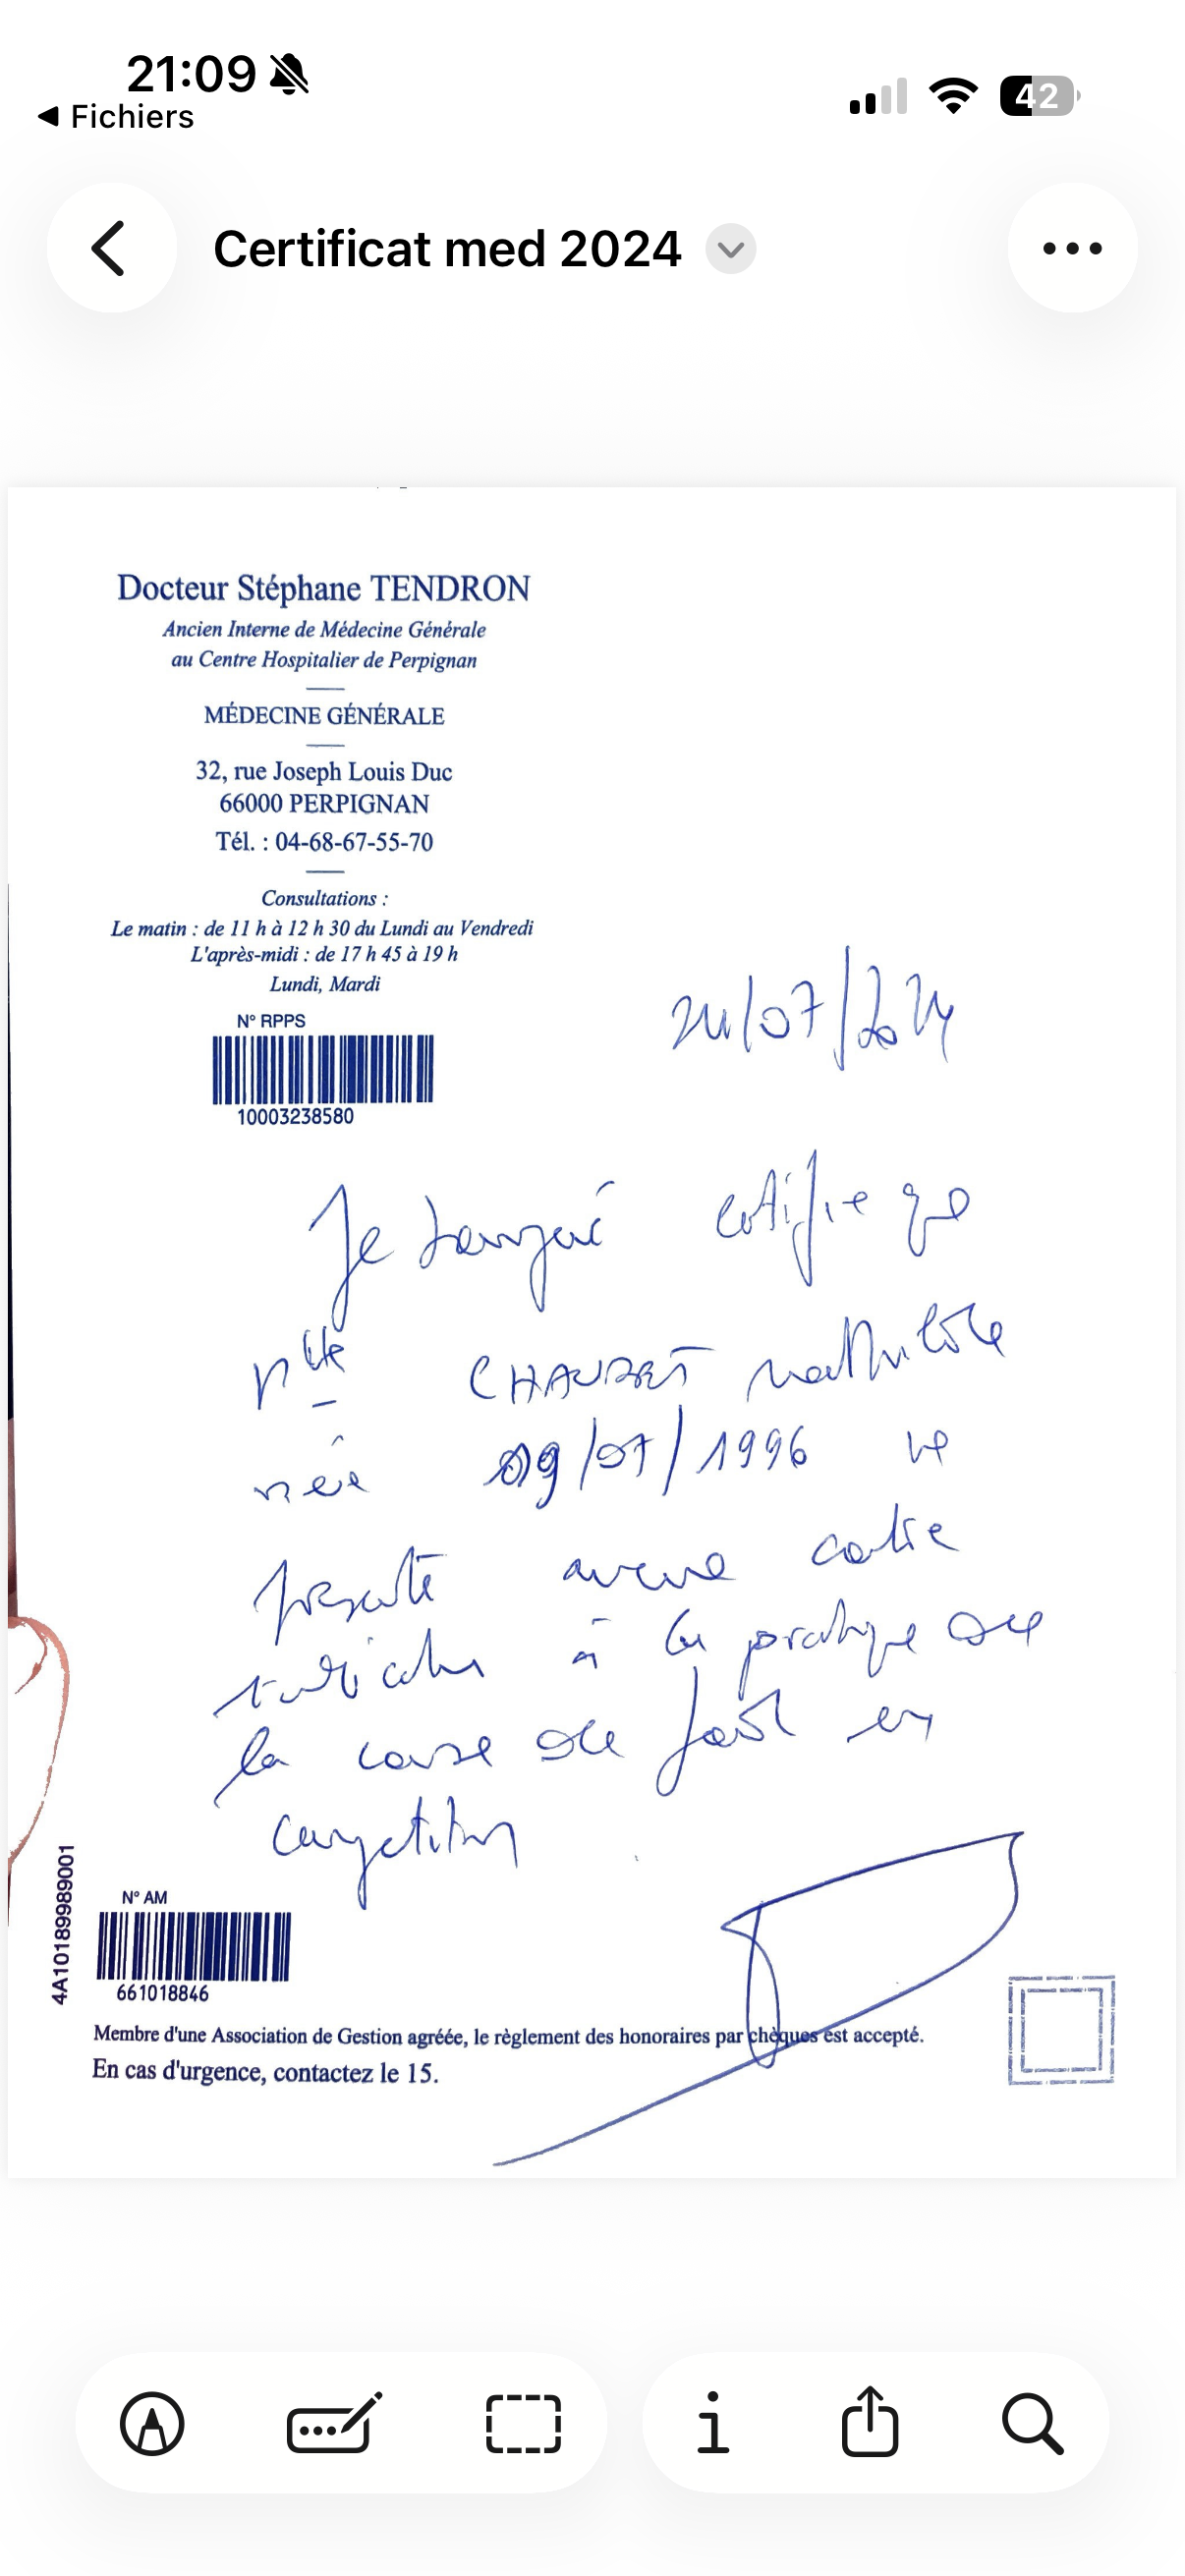 21:09
Fichiers
42
Certificat med 2024
Docteur Stéphane TENDRON
Ancien Interne de Médecine Générale
au Centre Hospitalier de Perpignan
MÉDECINE GÉNÉRALE
32, rue Joseph Louis Duc
66000 PERPIGNAN
Tél. : 04-68-67-55-70
Consultations :
Le matin : de 11 h à 12 h 30 du Lundi au Vendredi
L'après-midi : de 17 h 45 à 19 h
Lundi, Mardi
N° RPPS
10003238580
/07/2024
Je soussigné certifie que
Mlle CHAUBET Mathilde
née 09/07/1996 ne
présente aucune contre
indication à la pratique de
la course de fond en
compétition
4A10189989001
N° AM
661018846
Membre d'une Association de Gestion agréée, le règlement des honoraires par chèques est accepté.
En cas d'urgence, contactez le 15.